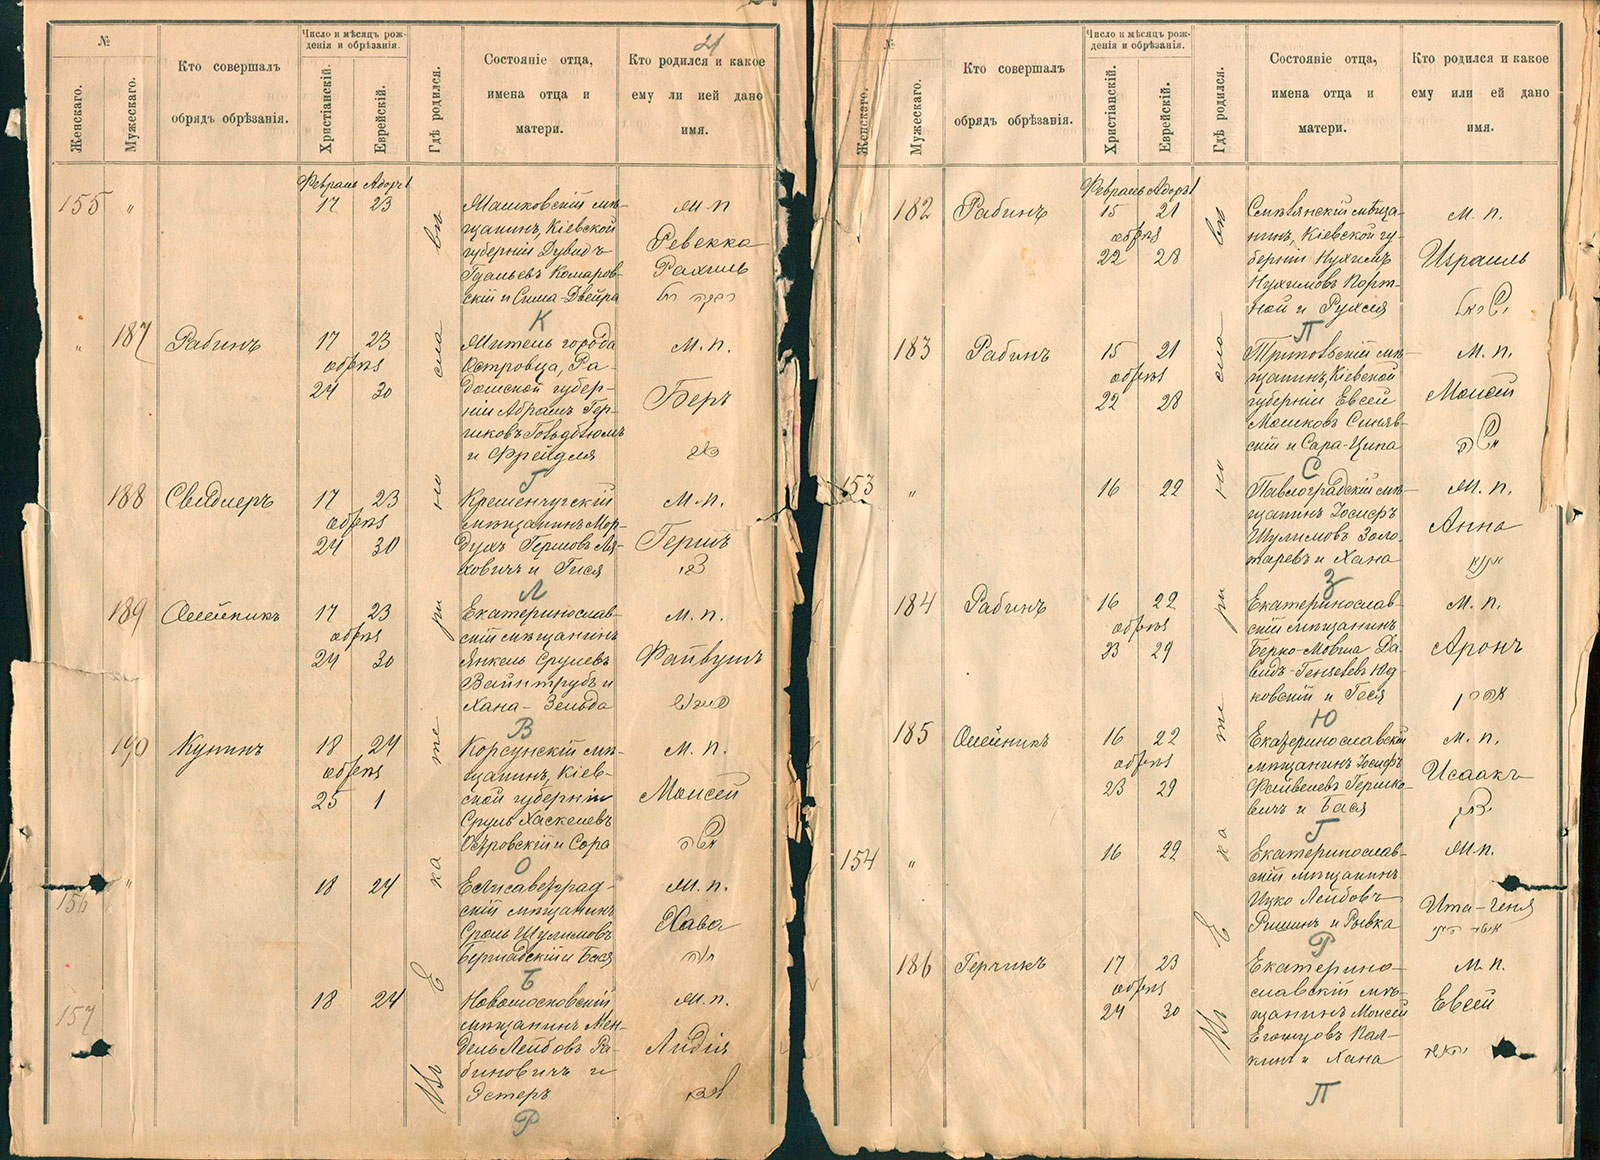 21
№
Женскаго.
Мужескаго.
Кто совершалъ
обрядъ обрѣзанія.
Число и мѣсяцъ рож-
денія и обрѣзанія.
Христіанскій.
Еврейскій.
Гдѣ родился.
Состояніе отца,
имена отца и
матери.
Кто родился и какое
ему ли ией дано
имя.
въ Екатеринославѣ
Февраль Адоръ 1
155 "
17 23
Машковскій мѣ-
щанинъ, Кіевской
губерніи Дувидъ
Гдальевъ Комаров-
скій и Сима-Двейра
К
М. п.
Ревекка
Рахиль
רבקה רחל
" 187
Рабинъ
17 23
обрѣз
24 30
Житель города
Островца, Ра-
домской губер-
ніи Абрамъ Гер-
шковъ Гольдблюмъ
и Фрейдля
Г
М. п.
Беръ
בער
188
Свидлеръ
17 23
обрѣз
24 30
Кременчугскій
мѣщанинъ Мор-
духъ Гершовъ Ля-
ховичъ и Гися
Л
М. п.
Гершъ
צבי
189
Олейникъ
17 23
обрѣз
24 30
Екатеринослав-
скій мѣщанинъ
Янкель Срулевъ
Вайнтрубъ и
Хана-Зельда
В
М. п.
Файвушъ
פייוויש
190
Кунинъ
18 24
обрѣз
25 1
Корсунскій мѣ-
щанинъ, Кіев-
ской губерніи
Сруль Хаскелевъ
Островскій и Сора
О
М. п.
Моисей
משה
156 "
18 24
Елисаветград-
скій мѣщанинъ
Сроль Шулимовъ
Бершадскій и Бася
Б
М. п.
Хава
חוה
157
18 24
Новомосковскій
мѣщанинъ Мен-
дель Лейбовъ Ра-
биновичъ и
Эстеръ
Р
М. п.
Лидія
№
Женскаго.
Мужескаго.
Кто совершалъ
обрядъ обрѣзанія.
Число и мѣсяцъ рож-
денія и обрѣзанія.
Христіанскій.
Еврейскій.
Гдѣ родился.
Состояніе отца,
имена отца и
матери.
Кто родился и какое
ему или ей дано
имя.
Февраль Адоръ 1
182
Рабинъ
15 21
обрѣз
22 28
Смѣлянскій мѣща-
нинъ, Кіевской гу-
берніи Нухимъ
Нухимовъ Порт-
ной и Рухля
П
М. п.
Израиль
ישראל
183
Рабинъ
15 21
обрѣз
22 28
Трипольскій мѣ-
щанинъ, Кіевской
губерніи Евсей
Мошковъ Синяв-
скій и Сара-Ципа
С
М. п.
Моисей
משה
153 "
16 22
Павлоградскій мѣ-
щанинъ Іосифъ
Шулимовъ Золо-
таревъ и Хана
З
М. п.
Анна
184
Рабинъ
16 22
обрѣз
23 29
Екатеринослав-
скій мѣщанинъ
Берко-Мовша Да-
видъ-Гензелевъ Юд-
ковскій и Гася
Ю
М. п.
Аронъ
אהרן
185
Олейникъ
16 22
обрѣз
23 29
Екатеринославскій
мѣщанинъ Іосифъ
Фейвелевъ Гершко-
вичъ и Бася
Г
М. п.
Исаакъ
יצחק
154 "
16 22
Екатеринослав-
скій мѣщанинъ
Ицко Лейбовъ
Ришинъ и Рывка
Р
М. п.
Ита-Геня
186
Герчикъ
17 23
обрѣз
24 30
Екатерино-
славскій мѣ-
щанинъ Моисей
Палкинъ и Хана
П
М. п.
Евсей